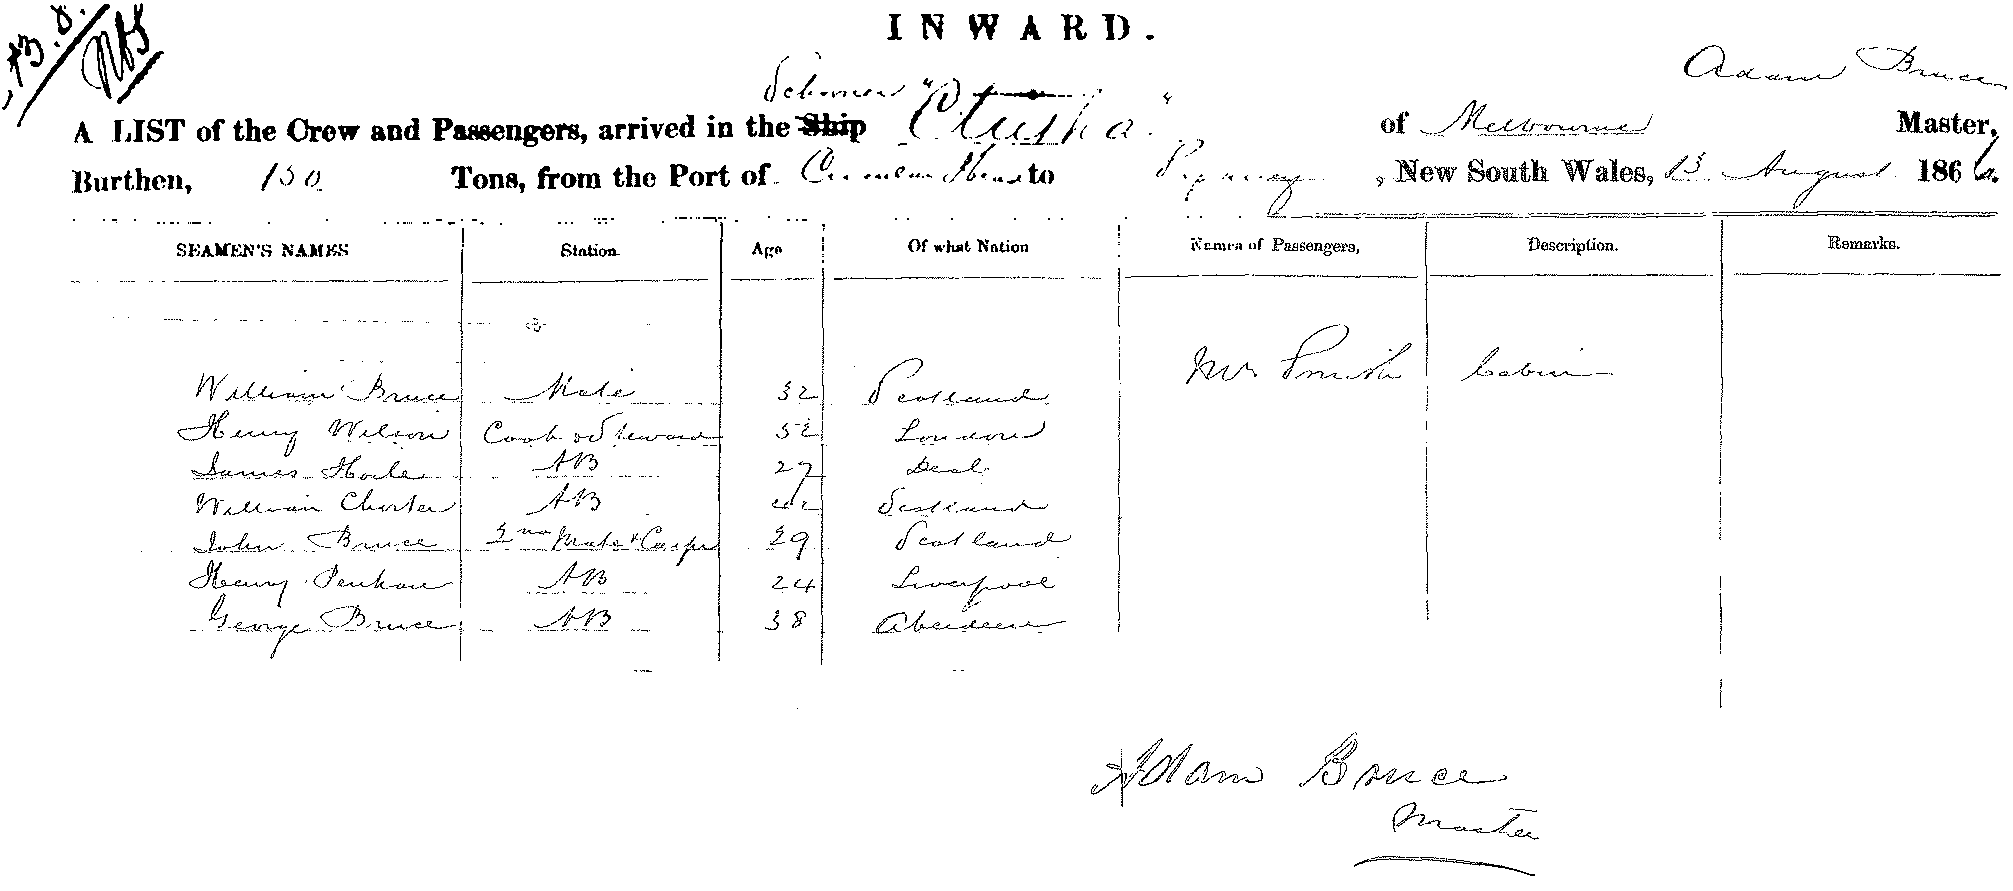 13.8.
INWARD.
Schooner
Adam Bruce
A LIST of the Crew and Passengers, arrived in the Ship "Clutha" of Melbourne Master,
Burthen, 130 Tons, from the Port of to Sydney, New South Wales, 13 August 1866.
SEAMEN'S NAMES Station Age Of what Nation Names of Passengers, Description. Remarks.
Mr Smith Cabin
William Bruce Mate 32 Scotland
Henry Wilson Cook & Steward 52 London
James AB 27 Deal
William AB 42 Scotland
John Bruce 2nd Mate & Carpr 29 Scotland
Henry AB 24 Liverpool
George Bruce AB 38 Aberdeen
Adam Bruce
Master